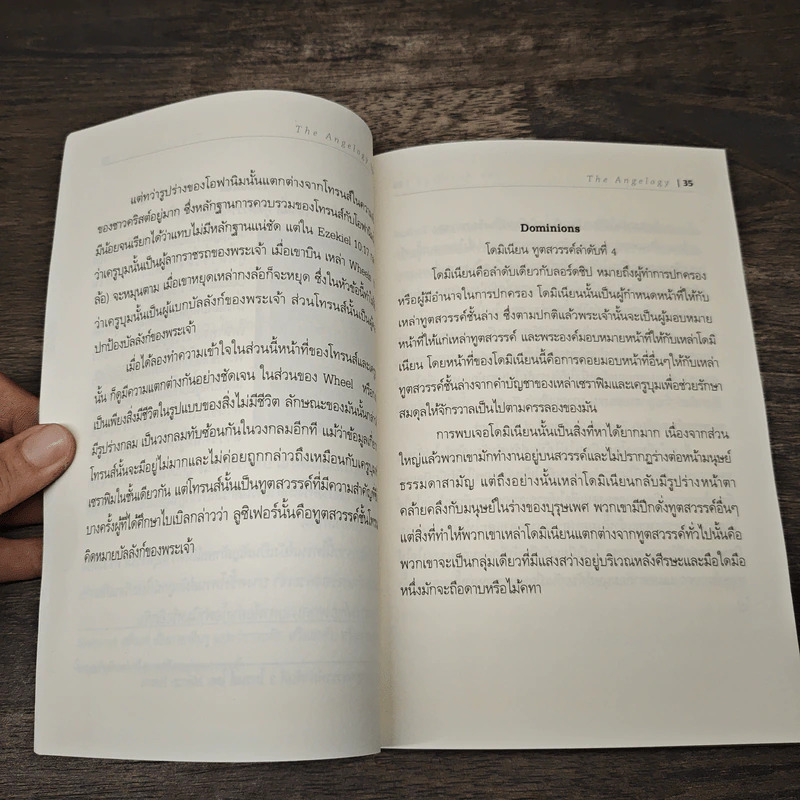 The Angelogy
แต่ทว่ารูปร่างของโอฟานิมนั้นแตกต่างจากโทรนส์ในความ
ของชาวคริสต์อยู่มาก ซึ่งหลักฐานการควบรวมของโทรนส์กับโอฟานิม
มีน้อยจนเรียกได้ว่าแทบไม่มีหลักฐานแน่ชัด แต่ใน Ezekiel 10:17
ว่าเครูบุมนั้นเป็นผู้ลากราชรถของพระเจ้า เมื่อเขาบิน เหล่า Wheels
ล้อ) จะหมุนตาม เมื่อเขาหยุดเหล่ากงล้อก็จะหยุด ซึ่งในหัวข้อนี้
ว่าเครูบุมนั้นเป็นผู้แบกบัลลังก์ของพระเจ้า ส่วนโทรนส์นั้นเป็น
ปกป้องบัลลังก์ของพระเจ้า
เมื่อได้ลองทำความเข้าใจในส่วนนี้หน้าที่ของโทรนส์และ
นั้น ก็ดูมีความแตกต่างกันอย่างชัดเจน ในส่วนของ Wheel
เป็นเพียงสิ่งมีชีวิตในรูปแบบของสิ่งไม่มีชีวิต ลักษณะของมันนั้น
มีรูปร่างกลม เป็นวงกลมทับซ้อนกันในวงกลมอีกที แม้ว่าข้อมูล
โทรนส์นั้นจะมีอยู่ไม่มากและไม่ค่อยถูกกล่าวถึงเหมือนกับเครูบุม
เซราฟิมในชั้นเดียวกัน แต่โทรนส์นั้นเป็นทูตสวรรค์ที่มีความสำคัญ
บางครั้งผู้ที่ได้ศึกษาไบเบิลกล่าวว่า ลูซิเฟอร์นั้นคือทูตสวรรค์ชั้น
คิดหมายบัลลังก์ของพระเจ้า
The Angelogy | 35
Dominions
โดมิเนียน ทูตสวรรค์ลำดับที่ 4
โดมิเนียนคือลำดับเดียวกับลอร์ดชิป หมายถึงผู้ทำการปกครอง
หรือผู้มีอำนาจในการปกครอง โดมิเนียนนั้นเป็นผู้กำหนดหน้าที่ให้กับ
เหล่าทูตสวรรค์ชั้นล่าง ซึ่งตามปกติแล้วพระเจ้านั้นจะเป็นผู้มอบหมาย
หน้าที่ให้แก่เหล่าทูตสวรรค์ และพระองค์มอบหมายหน้าที่ให้กับเหล่าโดมิ
เนียน โดยหน้าที่ของโดมิเนียนนี้คือการคอยมอบหน้าที่อื่นๆให้กับเหล่า
ทูตสวรรค์ชั้นล่างจากคำบัญชาของเหล่าเซราฟิมและเครูบุมเพื่อช่วยรักษา
สมดุลให้จักรวาลเป็นไปตามครรลองของมัน
การพบเจอโดมิเนียนนั้นเป็นสิ่งที่หาได้ยากมาก เนื่องจากส่วน
ใหญ่แล้วพวกเขามักทำงานอยู่บนสวรรค์และไม่ปรากฏร่างต่อหน้ามนุษย์
ธรรมดาสามัญ แต่ถึงอย่างนั้นเหล่าโดมิเนียนกลับมีรูปร่างหน้าตา
คล้ายคลึงกับมนุษย์ในร่างของบุรุษเพศ พวกเขามีปีกดั่งทูตสวรรค์อื่นๆ
แต่สิ่งที่ทำให้พวกเขาเหล่าโดมิเนียนแตกต่างจากทูตสวรรค์ทั่วไปนั้นคือ
พวกเขาจะเป็นกลุ่มเดียวที่มีแสงสว่างอยู่บริเวณหลังศีรษะและมือใดมือ
หนึ่งมักจะถือดาบหรือไม้คทา